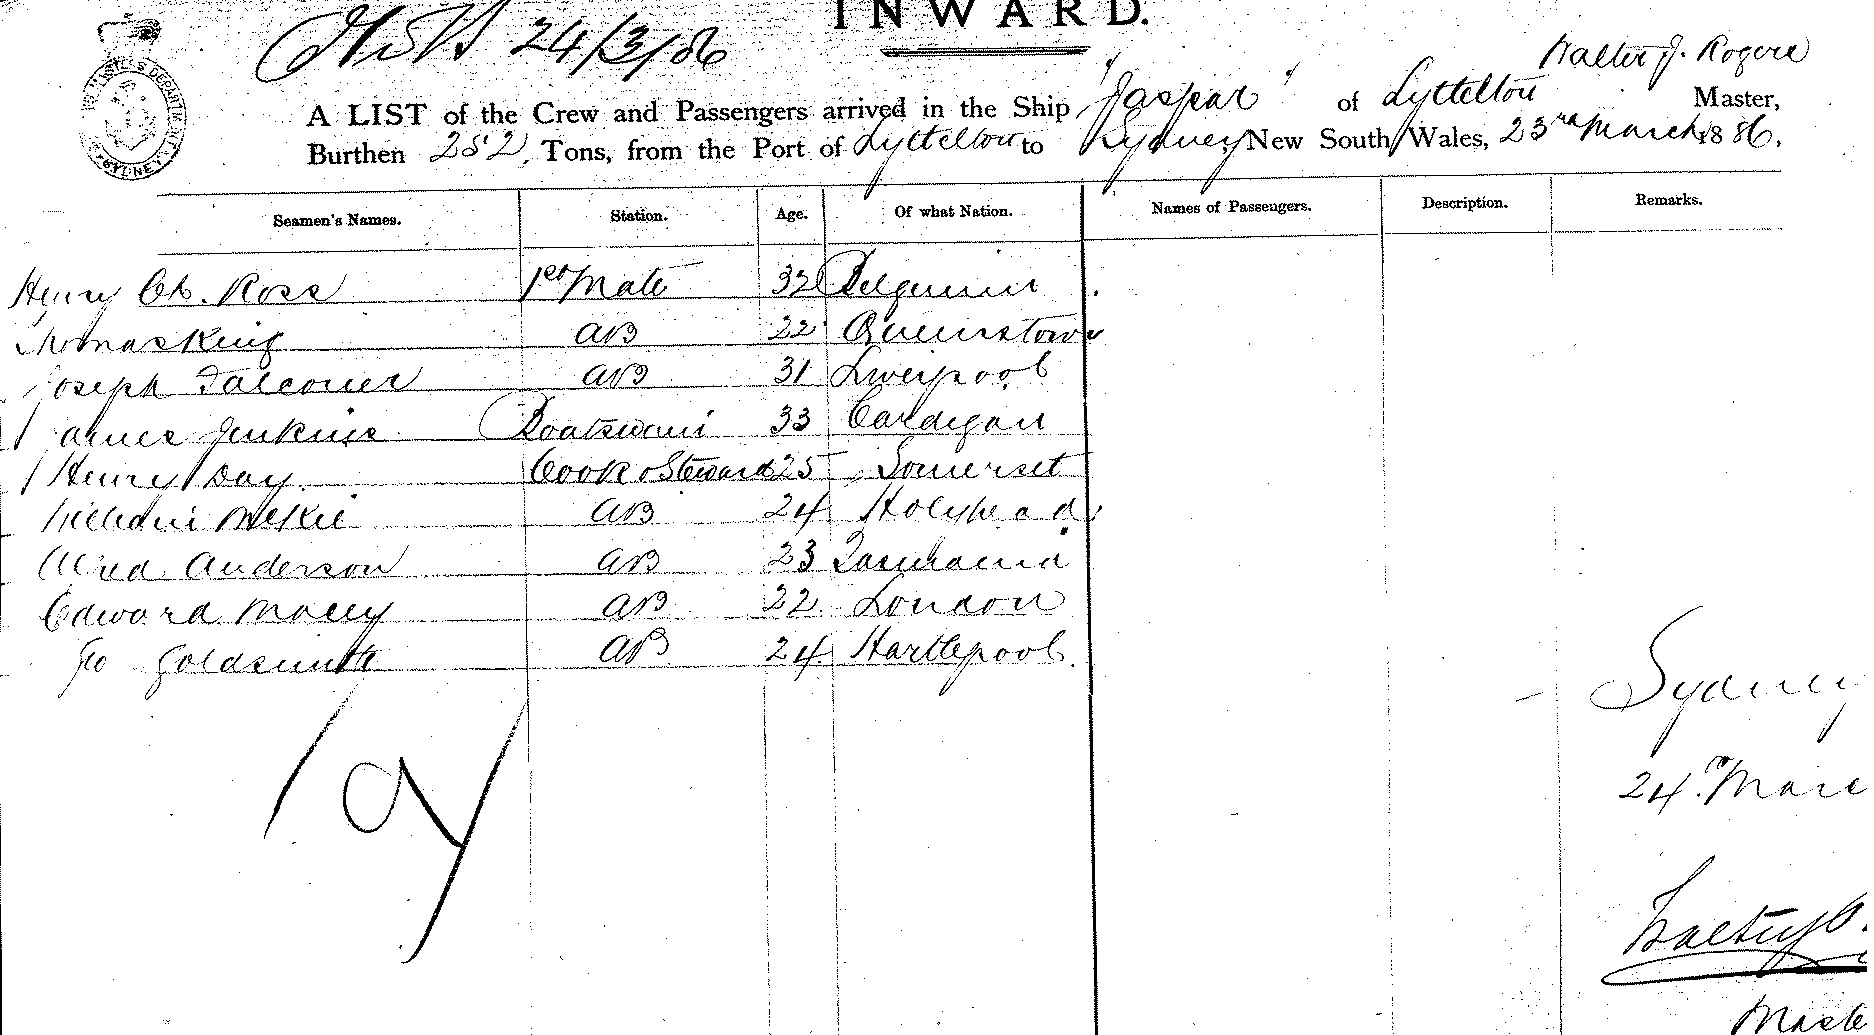 INWARD.
24/3/86
Walter J. Rogers
A LIST of the Crew and Passengers arrived in the Ship "Jaspar" of Lyttelton Master,
Burthen 252 Tons, from the Port of Lyttelton to Sydney New South Wales, 23rd March 1886.
Seamen's Names. Station. Age. Of what Nation. Names of Passengers. Description. Remarks.
Henry Ch. Ross 1st Mate 32 Belgium
Thomas King AB 22 Queenstown
Joseph Falconer AB 31 Liverpool
James Jenkins Boatswain 33 Cardigan
Henry Day Cook & Steward 25 Somerset
William McKie AB 24 Holyhead
Alfred Anderson AB 23 Tasmania
Edward Macey AB 22 London
Geo Goldsmith AB 24 Hartlepool
Sydney
24th Marc
9
Mast